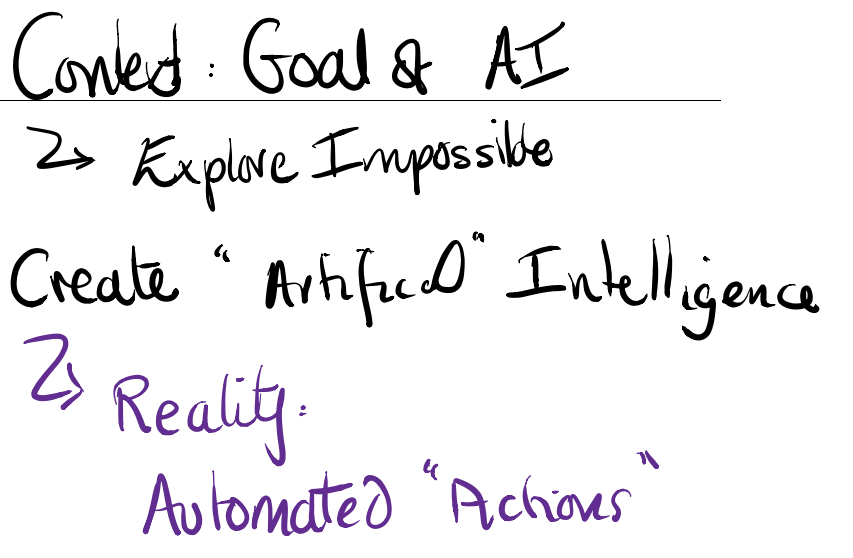 Context: Goal of AI
Explore Impossible
Create "Artifical" Intelligence
Reality:
Automated "Actions"